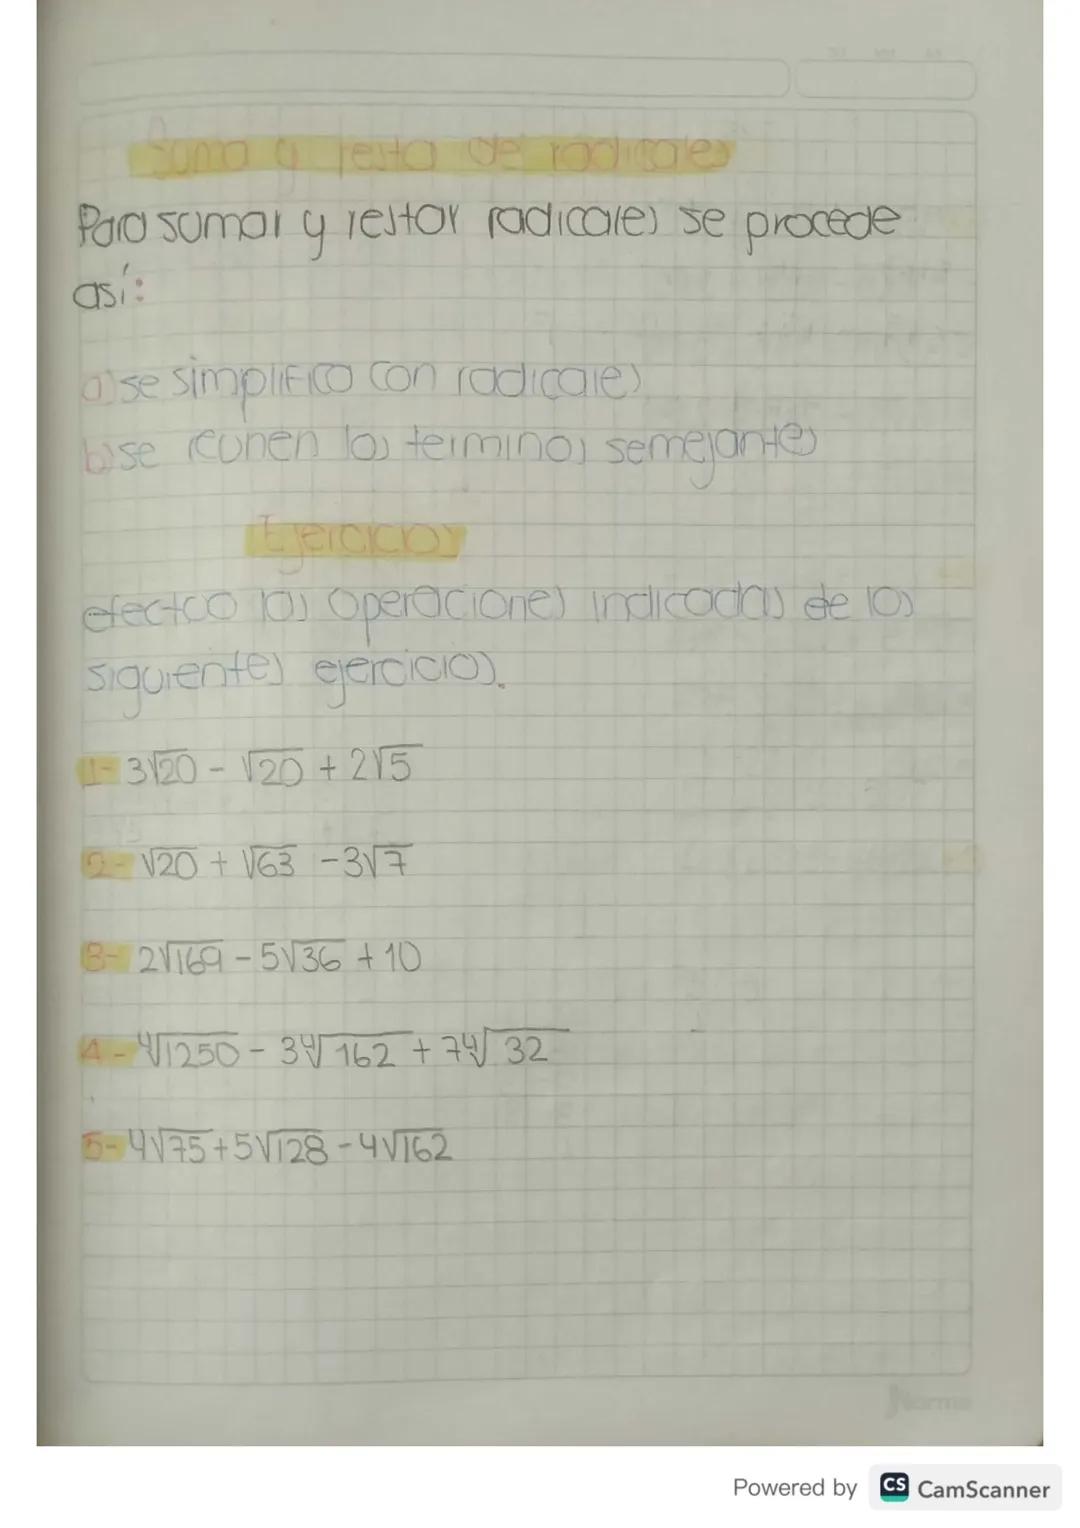 Suma y resta de radicales
Para sumar y restar radicales se procede
así:
a) se simplifica con radicales
b) se reunen los terminos semejantes
Ejercicios
efectuo las operaciones indicadas de los
siguientes ejercicios.
1- 3√20 - √20 + 2√5
2- √20 + √63 - 3√7
3- 2√169 - 5√36 + 10
4- ∜1250 - 3∜162 + 7∜32
5- 4√75 + 5√128 - 4√162
Norma
Powered by CS CamScanner